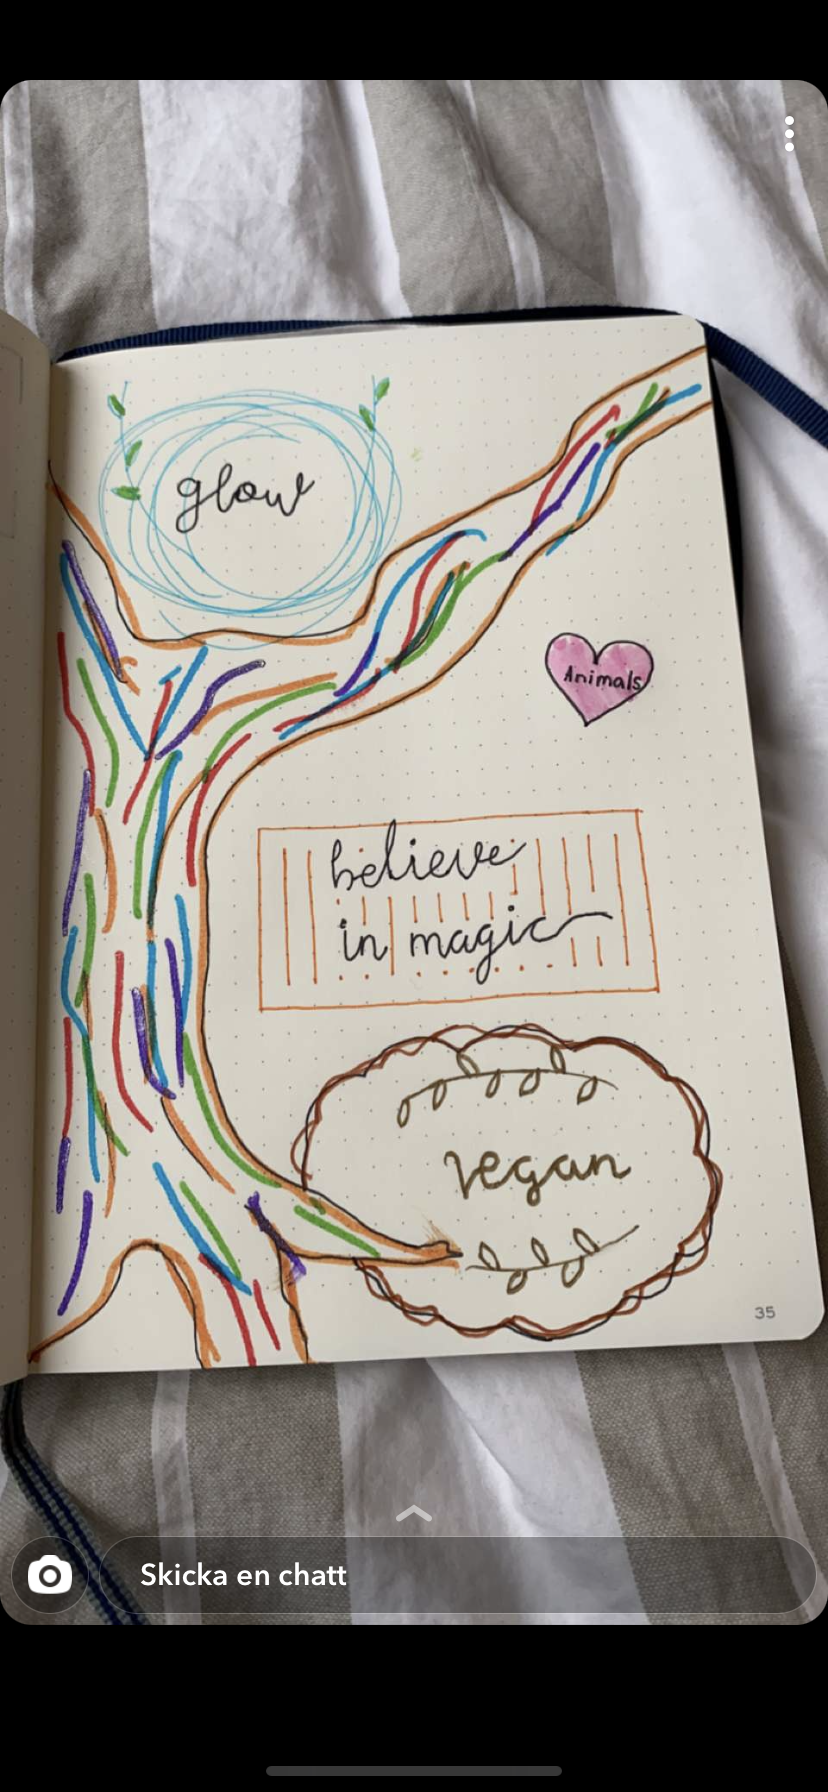 glow
Animals
believe
in magic
vegan
35
Skicka en chatt